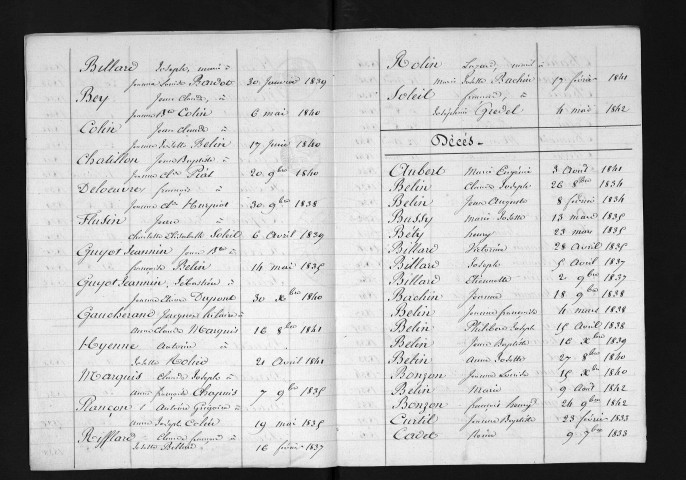 Billard Joseph, marié à
Jeanne Louise Bardot 30 Janvier 1839
Bey Jean Claude, à
Jeanne Bte Colin 6 mai 1840
Colin Jean Claude à
Jeanne Judette Belin 17 Juin 1840
Chatillon Jean Baptiste à
Jeanne Cte 20 9bre 1840
Deloeuvre François à
Jeanne Cte 30 9bre 1838
Flusin Jean à
Charlotte Elisabeth Soleil 6 Avril 1839
Guyot Jeannin Jean Bte à
françoise Belin 14 mai 1835
Guyot Jeannin, Sébastien à
Jeanne Dupont 30 Xbre 1840
Gaucherand Jacques hilaire à
Anne Claude Marquis 16 8bre 1841
Hyenne Antoine à
21 Avril 1841
Marquis Claude Joseph à
Anne françoise Chapuis 7 9bre 1835
Plançon Antoine Grégoire à
Anne Joseph Colin 19 mai 1835
Rifflard Claude françois à
Billard 16 février 1837
Rolin Lazard, marié à
Marie Judette Bachin 17 février 1841
Soleil françois, à
Joséphine 4 mai 1842
Décès.
Aubert Marie Eugénie 3 Août 1841
Belin Claude Joseph 26 8bre 1834
Belin Jean Auguste 8 février 1834
Bussy Marie Judette 13 mars 1835
Bety henry 23 mars 1835
Billard Victorine 28 Avril 1835
Billard Joseph 5 Avril 1837
Billard Etiennette 2 9bre 1837
Bachin Jeanne 18 9bre 1838
Belin Jeanne françoise 4 mars 1838
Belin Philibert Joseph 15 Avril 1838
Belin Jean Baptiste 10 Xbre 1839
Belin Anne Judette 27 8bre 1840
Bonzon Jeanne Louise 15 Xbre 1840
Belin Marie 9 Août 1842
Bonzon françois henry 24 9bre 1842
Curtil Jeanne Baptiste 23 février 1833
Cadet 9 7bre 1833